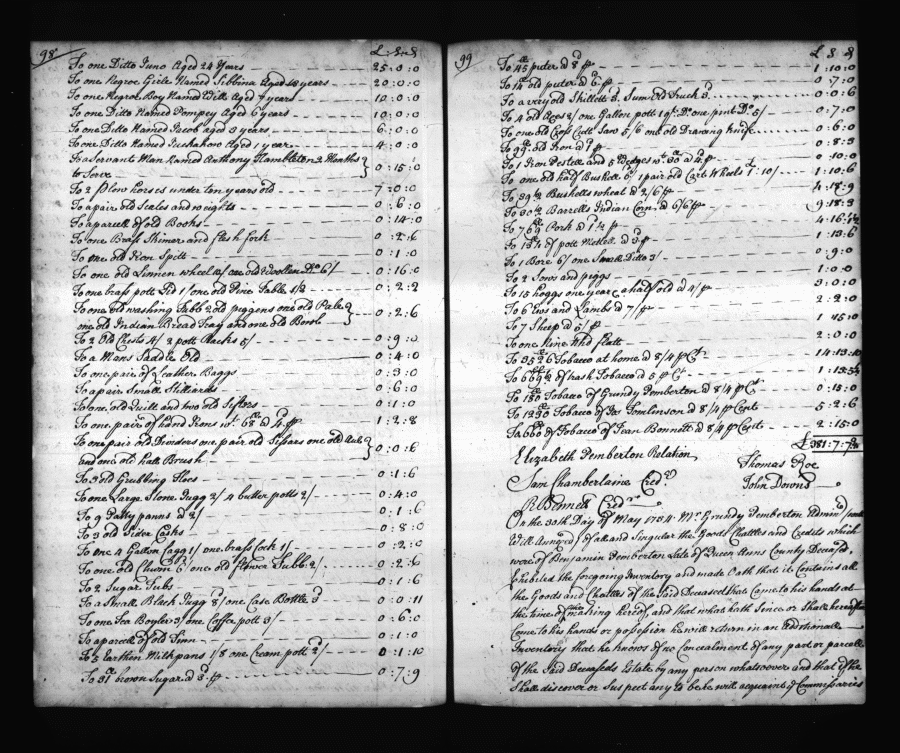 98
£ : S : d
To one Ditto Juno Aged 24 Years 25 : 0 : 0
To one Negroe Girle Named Sibbina Aged 18 years 20 : 0 : 0
To one Negroe Boy Named Will Aged 7 years 10 : 0 : 0
To one Ditto Named Pompey Aged 6 years 10 : 0 : 0
To one Ditto Named Jacob aged 3 years 6 : 0 : 0
To one Ditto Named Aged 1 year 4 : 0 : 0
To a Servant Man Named Anthony Hambleton 2 Months
to Serve 0 : 15 : 0
To 2 Plow horses under ten years old 7 : 0 : 0
To a pair old Scales and weights 0 : 6 : 0
To a parcell of old Books 0 : 14 : 0
To one Brass Skimer and flesh fork 0 : 2 : 6
To one old Iron Spitt 0 : 1 : 0
To one old Linnen wheel 10/ one old Woollen Do 6/ 0 : 16 : 0
To one brass pott Lid 1/ one old Pine Table 1/2 0 : 2 : 2
To one old washing Tubb 2 old piggens one old Pale
one old Indian Bread Tray and one old Bowle 0 : 2 : 6
To 2 Old Chests 4/ 2 pott Racks 5/ 0 : 9 : 0
To a Mans Saddle Old 0 : 4 : 0
To one pair of Leather Baggs 0 : 3 : 0
To a pair Small Stilliards 0 : 6 : 0
To one old Quill and two old Sifters 0 : 1 : 0
To one pair of hand Irons wt. 68 lb d 4 p 1 : 2 : 8
To one pair old Dividers one pair old Scissars one old
and one old Rub Brush 0 : 0 : 6
To 3 old Grubbing Hoes 0 : 1 : 6
To one Large Stone Jugg 2/ 4 butter potts 2/ 0 : 4 : 0
To 9 Patty panns d 2/ 0 : 1 : 6
To 3 old Sider Casks 0 : 8 : 0
To one 4 Gallon Cagg 1/ one brass Cock 1/ 0 : 2 : 0
To one old Churn 6 / one old flower Tubb 2/ 0 : 2 : 6
To 2 Sugar Tubs 0 : 1 : 6
To a Small Black Jugg 8/ one Case Bottle 3 0 : 0 : 11
To one Tea Boyler 3/ one Coffee pott 3/ 0 : 6 : 0
To a parcell of old Tinn 0 : 1 : 0
To 5 Earthen Milk pans 1/8 one Cream pott 2/ 0 : 1 : 10
To 31 lb brown Sugar d 3 p 0 : 7 : 9
99
£ S d
To 45 lb puter d 8 p 1 : 10 : 0
To 14 lb old puter d 6 p 0 : 7 : 0
To a very old Skillett 3 Sum Old Truck 3 0 : 0 : 6
To 4 old Axes 3/ one Gallon pott 1 qt Do one pint Do 5/ 0 : 7 : 0
To one old Cross Cutt Saw 5/6 one old Drawing Knife 0 : 6 : 0
To 99 lb old Iron d 1 p 0 : 8 : 3
To 1 Iron Pestell and 5 Wedges wt. 30 lb d 4 p 0 : 10 : 0
To one old half Bushell 6/ 1 pair old Cart Wheels 1:10/ 1 : 10 : 6
To 39 1/2 Bushells wheat d 2/6 p 4 : 18 : 9
To 30 1/2 Barrells Indian Corn d 6/6 p 9 : 18 : 3
To 769 lb Pork d 1 1/2 p 4 : 16 : 1 1/2
To 134 lb of pott Mettell d 3 p 1 : 13 : 6
To 1 Bore 6/ one Small Ditto 3/ 0 : 9 : 0
To 2 Sows and piggs 1 : 0 : 0
To 15 hoggs one year & a half old d 4/ p 3 : 0 : 0
To 6 Ews and Lambs d 7/ p 2 : 2 : 0
To 7 Sheep d 5/ p 1 : 15 : 0
To one Nine hhd flatt 2 : 0 : 0
To 3526 lb Tobacco at home d 8/4 p Ct 14 : 13 : 10
To 669 1/2 of trash Tobacco d 5 p Ct 1 : 13 : 5 1/2
To 180 Tobacco of Grundy Pemberton d 8/4 p Ct 0 : 15 : 0
To 1230 Tobacco of Tomlinson d 8/4 p Cent 5 : 2 : 6
To 660 of Tobacco of Jean Bonnett d 8/4 p Cent 2 : 15 : 0
£381 : 7 : 7
Elizabeth Pemberton Relation Thomas Roe
Sam Chamberlaine Credr John Downs
R Bennett Credr
On the 30th Day of May 1754 Mr Grundy Pemberton Admin/with
Will Annexed/ of all and Singular the Goods Chattles and Credits which
were of Benjamin Pemberton Late of Queen Anns County Deceased,
Exhibited the foregoing Inventory and made Oath that it Contains all
the Goods and Chattles of the said Deceased that Came to his hands at
the time of making thereof, and that what hath Since or Shall hereafter
Come to his hands or possesion he will return in an Additionall
Inventory that he knows of no Concealment of any part or parcell
of the Said Deceaseds Estate by any person whatsoever and that if he
Shall discover or Suspect any to be he will acquaint ye Commissaries